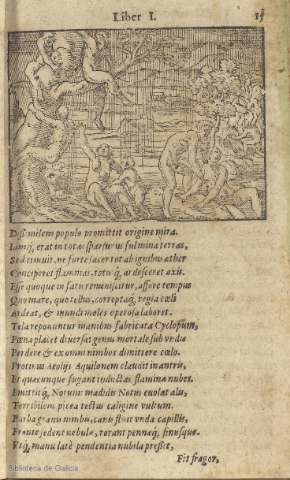 Liber I. 15
Dissimilem populo promittit origine mira.
Iamq́, erat in totas sparsurus fulmina terras,
Sed timuit, ne fortè sacer tot ab ignibus æther
Conciperet flammas, totuq́, ardesceret axis.
Esse quoque in fatis reminiscitur, affore tempus
Quo mare, quo tellus, correptaq́, regia cœli
Ardeat, & mundi moles operosa laboret.
Tela reponuntur manibus fabricata Cyclopum,
Pœna placet diuersa: genus mortale sub vnda
Perdere & ex omni nimbos dimittere cœlo.
Protinus Aeolijs Aquilonem claudit in antris,
Et quæcunque fugant inductas flamina nubes.
Emittitq́, Notum: madidis Notus euolat alis,
Terribilem picea tectus caligine vultum.
Barba grauis nimbis, canis fluit vnda capillis,
Fronte sedent nebulæ, rorant pennæq́, sinusque.
Vtq́, manu latè pendentia nubila pressit,
Fit fragor,
Biblioteca de Galicia